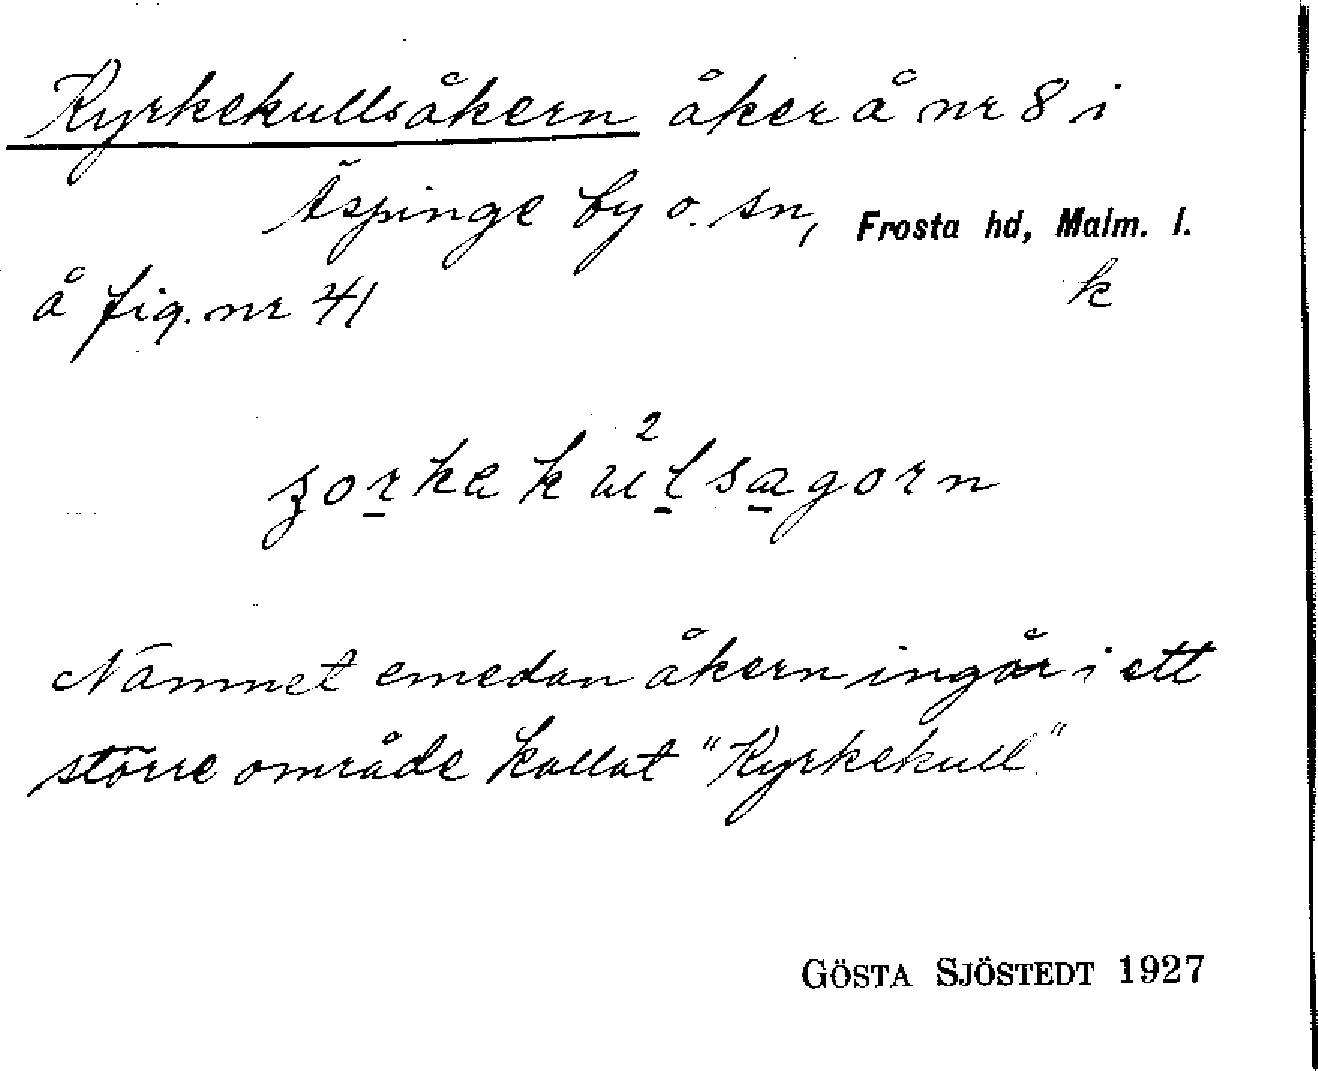 Kyrkekullsåkern åker å nr 8 i
Äspinge by o. sn, Frosta hd, Malm. l.
å fig. nr 41 k
2
Namnet emedan åkern ingår i ett
större område kallat "Kyrkekull"
GÖSTA SJÖSTEDT 1927